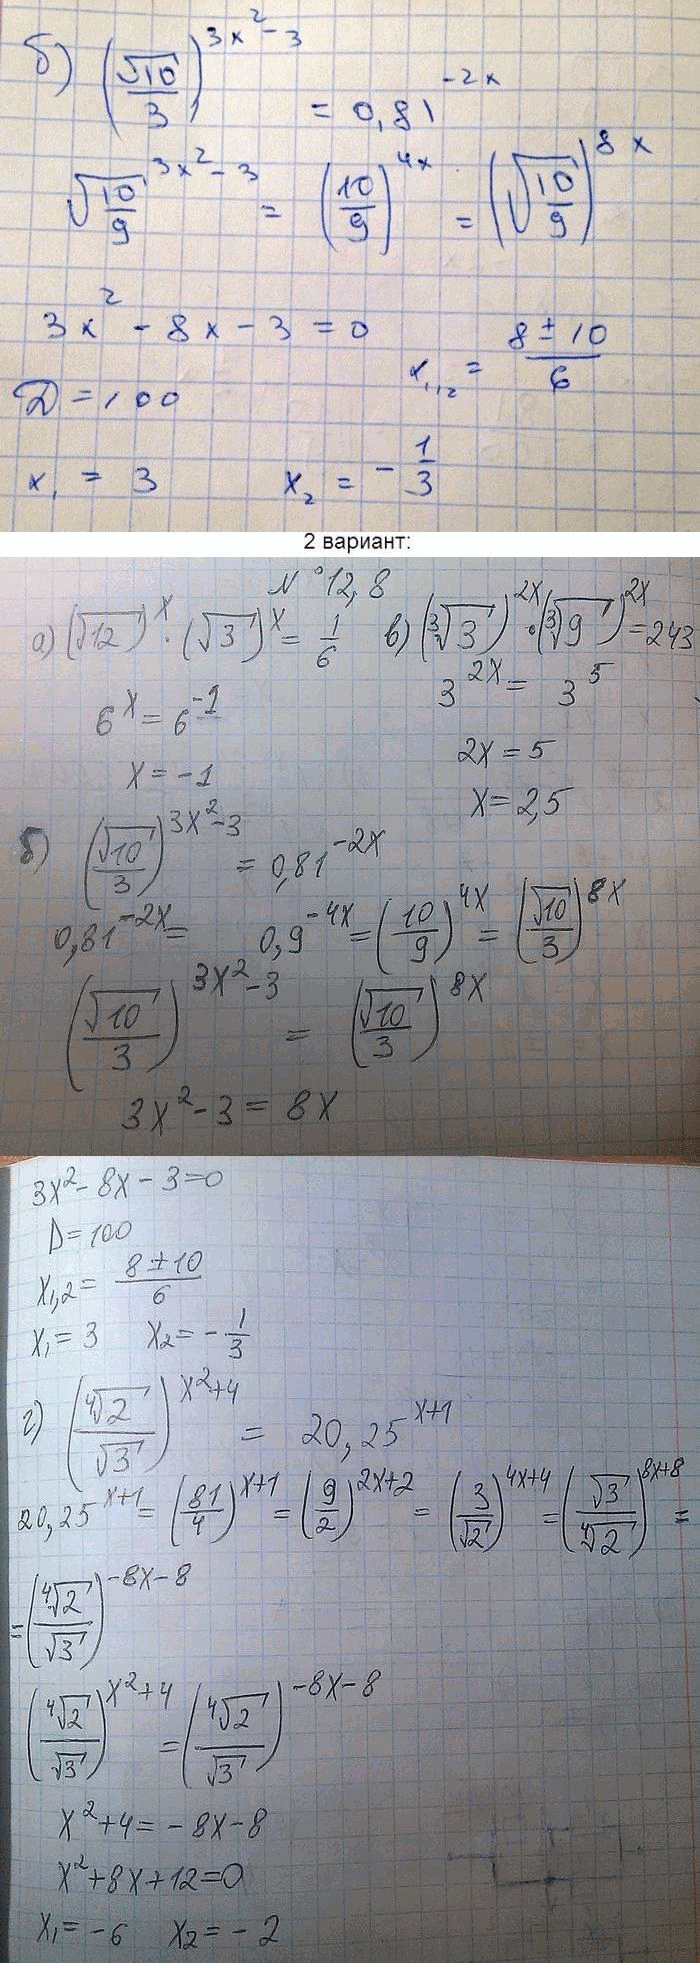 б) (√10/3)^(3x²-3) = 0,81^(-2x)
√(10/9)^(3x²-3) = (10/9)^(4x) = (√(10/9))^(8x)
3x² - 8x - 3 = 0
x₁,₂ = (8 ± 10)/6
D = 100
x₁ = 3 x₂ = -1/3
2 вариант:
N°12,8
а) (√12)^x · (√3)^x = 1/6 в) (∛3)^(2x) · (∛9)^(2x) = 243
6^x = 6^(-1) 3^(2x) = 3^5
x = -1 2x = 5
x = 2,5
б) (√10/3)^(3x²-3) = 0,81^(-2x)
0,81^(-2x) = 0,9^(-4x) = (10/9)^(4x) = (√10/3)^(8x)
(√10/3)^(3x²-3) = (√10/3)^(8x)
3x²-3 = 8x
3x²-8x-3=0
D=100
x₁,₂ = (8±10)/6
x₁=3 x₂=-1/3
г) (∜2/√3)^(x²+4) = 20,25^(x+1)
20,25^(x+1) = (81/4)^(x+1) = (9/2)^(2x+2) = (3/√2)^(4x+4) = (√3/∜2)^(8x+8) =
= (∜2/√3)^(-8x-8)
(∜2/√3)^(x²+4) = (∜2/√3)^(-8x-8)
x²+4 = -8x-8
x²+8x+12=0
x₁=-6 x₂=-2